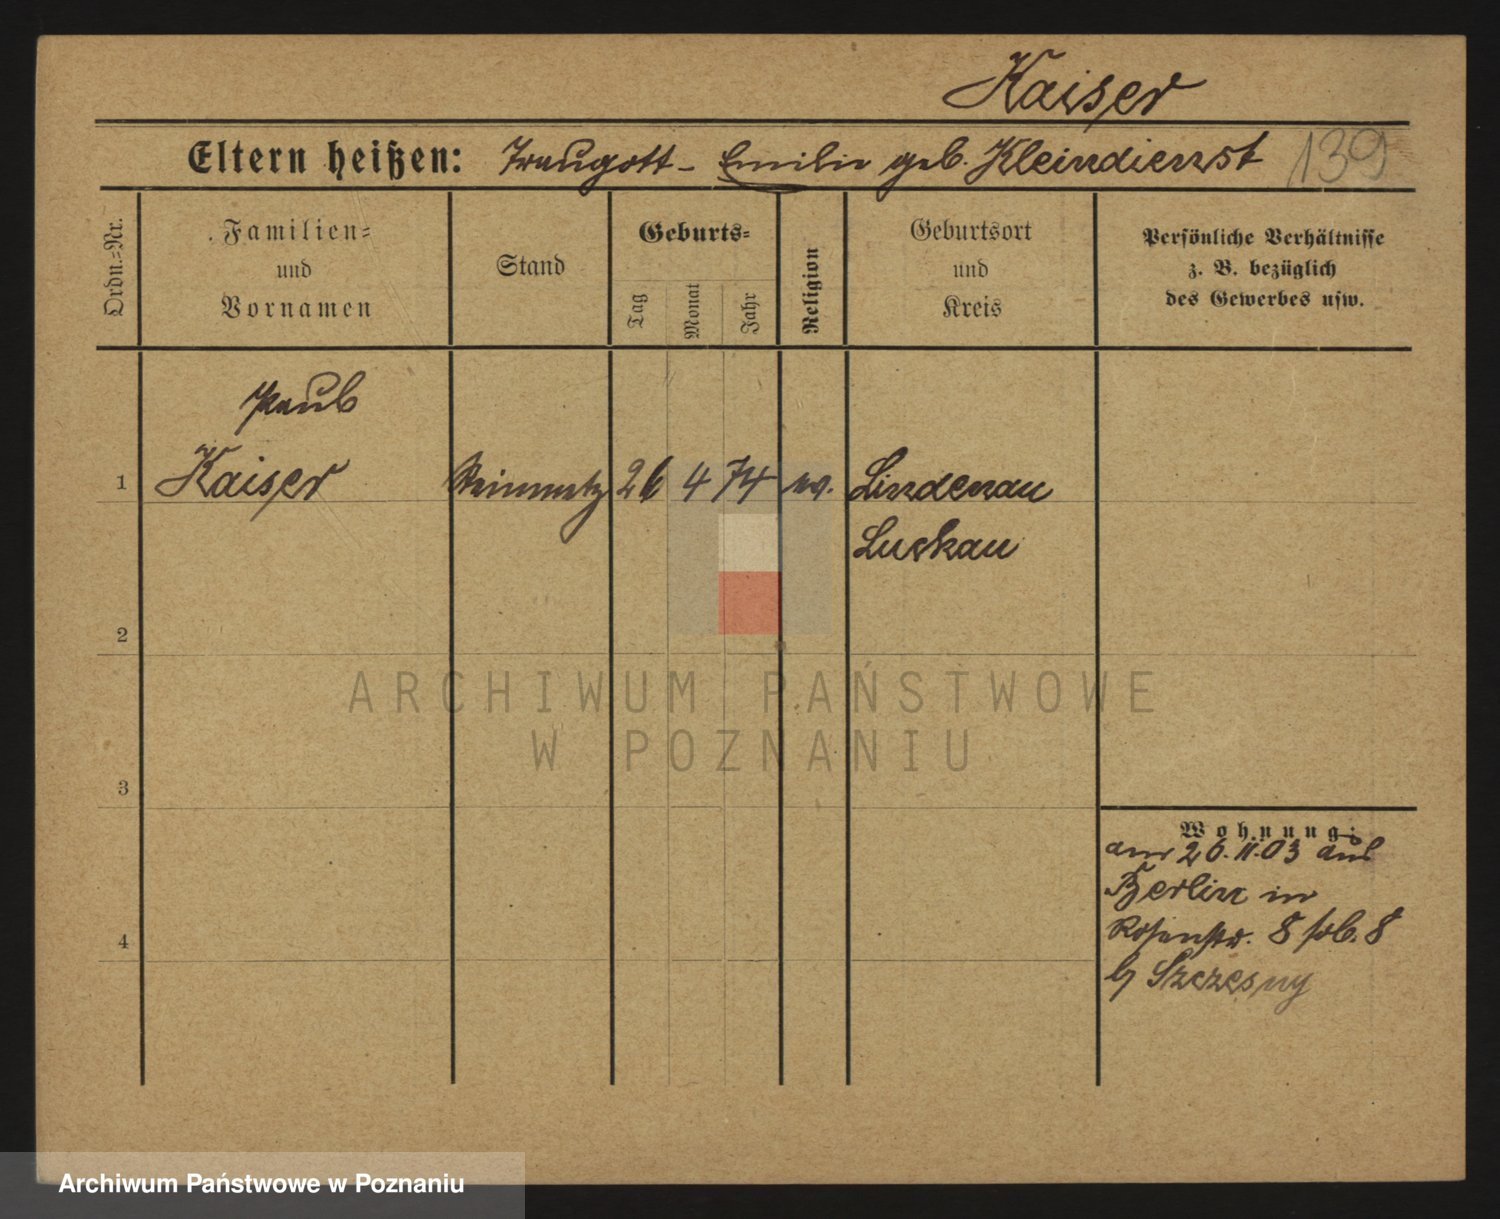 Kaiser
Eltern heißen: Traugott - Emilie geb. Kleindienst 139
Ordn.=Nr.
Familien=
und
Vornamen
Stand
Geburts=
Tag
Monat
Jahr
Religion
Geburtsort
und
Kreis
Persönliche Verhältnisse
z. B. bezüglich
des Gewerbes usw.
Paul
1 Kaiser Steinmetz 26 4 74 ev. Lindenau
Luckau
2
3
4
Wohnung:
am 26.11.03 aus
Berlin in
Rosenstr. 8
b/ Szczesny
ARCHIWUM PAŃSTWOWE
W POZNANIU
Archiwum Państwowe w Poznaniu